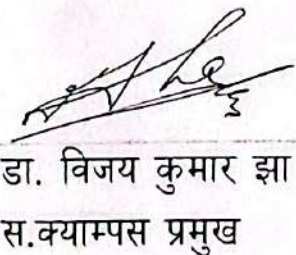 डा. विजय कुमार झा
स.क्याम्पस प्रमुख